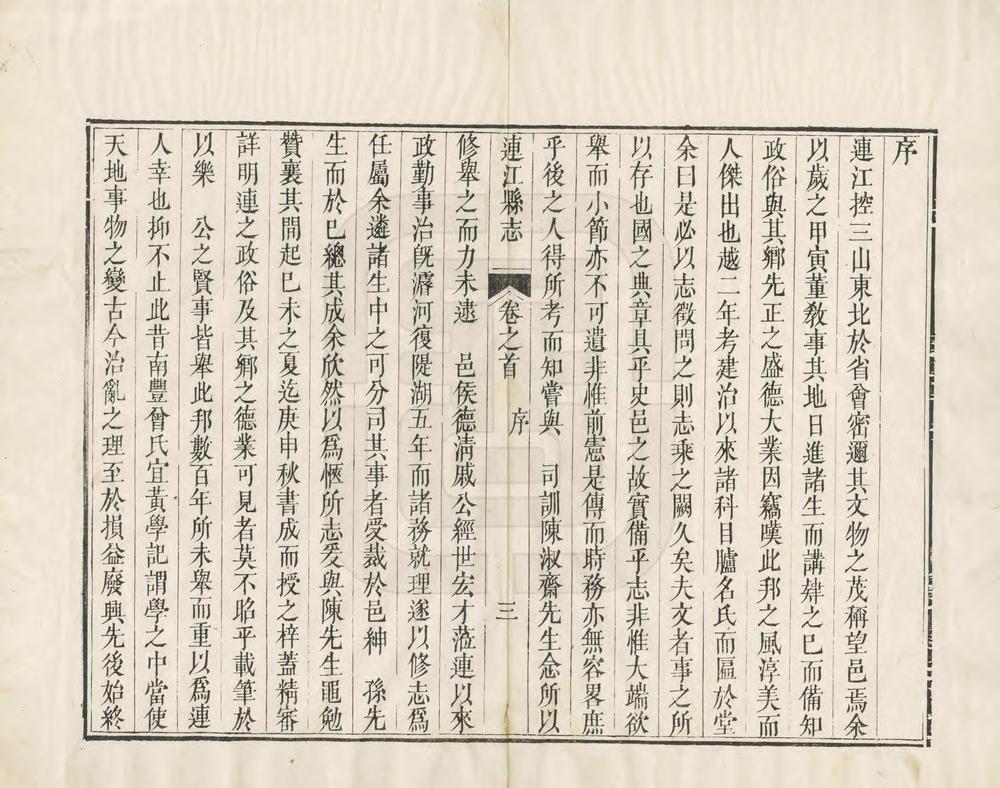 序
連江控三山東北於省會密邇其文物之茂稱望邑焉余
以歲之甲寅董敎事其地日進諸生而講肄之已而備知
政俗與其鄉先正之盛德大業因竊嘆此邦之風淳美而
人傑出也越二年考建治以來諸科目臚名氏而區於堂
余曰是必以志徵問之則志乘之闕久矣夫文者事之所
以存也國之典章具乎史邑之故實備乎志非惟大端欲
舉而小節亦不可遺非惟前憲是傳而時務亦無容畧庶
乎後之人得所考而知嘗與　司訓陳淑齋先生念所以
連江縣志　卷之首　序　三
修舉之而力未逮　邑侯德淸戚公經世宏才蒞連以來
政勤事治旣濬河復隄湖五年而諸務就理遂以修志爲
任屬余遴諸生中之可分司其事者爰裁於邑紳　孫先
生而於已總其成余欣然以爲愜所志爰與陳先生黽勉
贊襄其間起已未之夏迄庚申秋書成而授之梓蓋精審
詳明連之政俗及其鄉之德業可見者莫不昭乎載筆於
以樂　公之賢事皆舉此邦數百年所未舉而重以爲連
人幸也抑不止此昔南豐曾氏宜黃學記謂學之中當使
天地事物之變古今治亂之理至於損益廢興先後始終